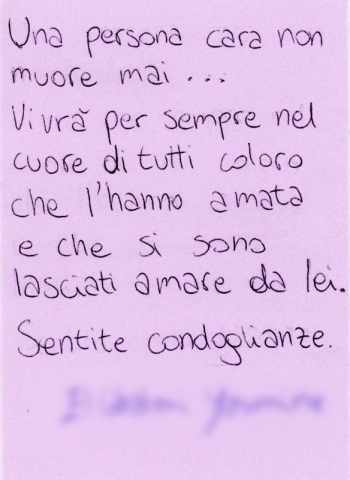 Una persona cara non
muore mai...
Vivrà per sempre nel
cuore di tutti coloro
che l'hanno amata
e che si sono
lasciati amare da lei.
Sentite condoglianze.